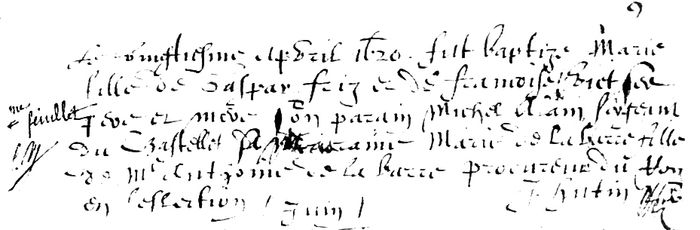 Le vingtiesme Apvril 1620. fut baptize Marie
fille de Gaspar friz et de francoise ses
pere et mere son parain Michel sergeant
me feuillet
du Chastellet sa maraine Marie de la barre fille
de Me Anthoine de la barre procureur du Roy
en l'eslection / Juin / J. hutin